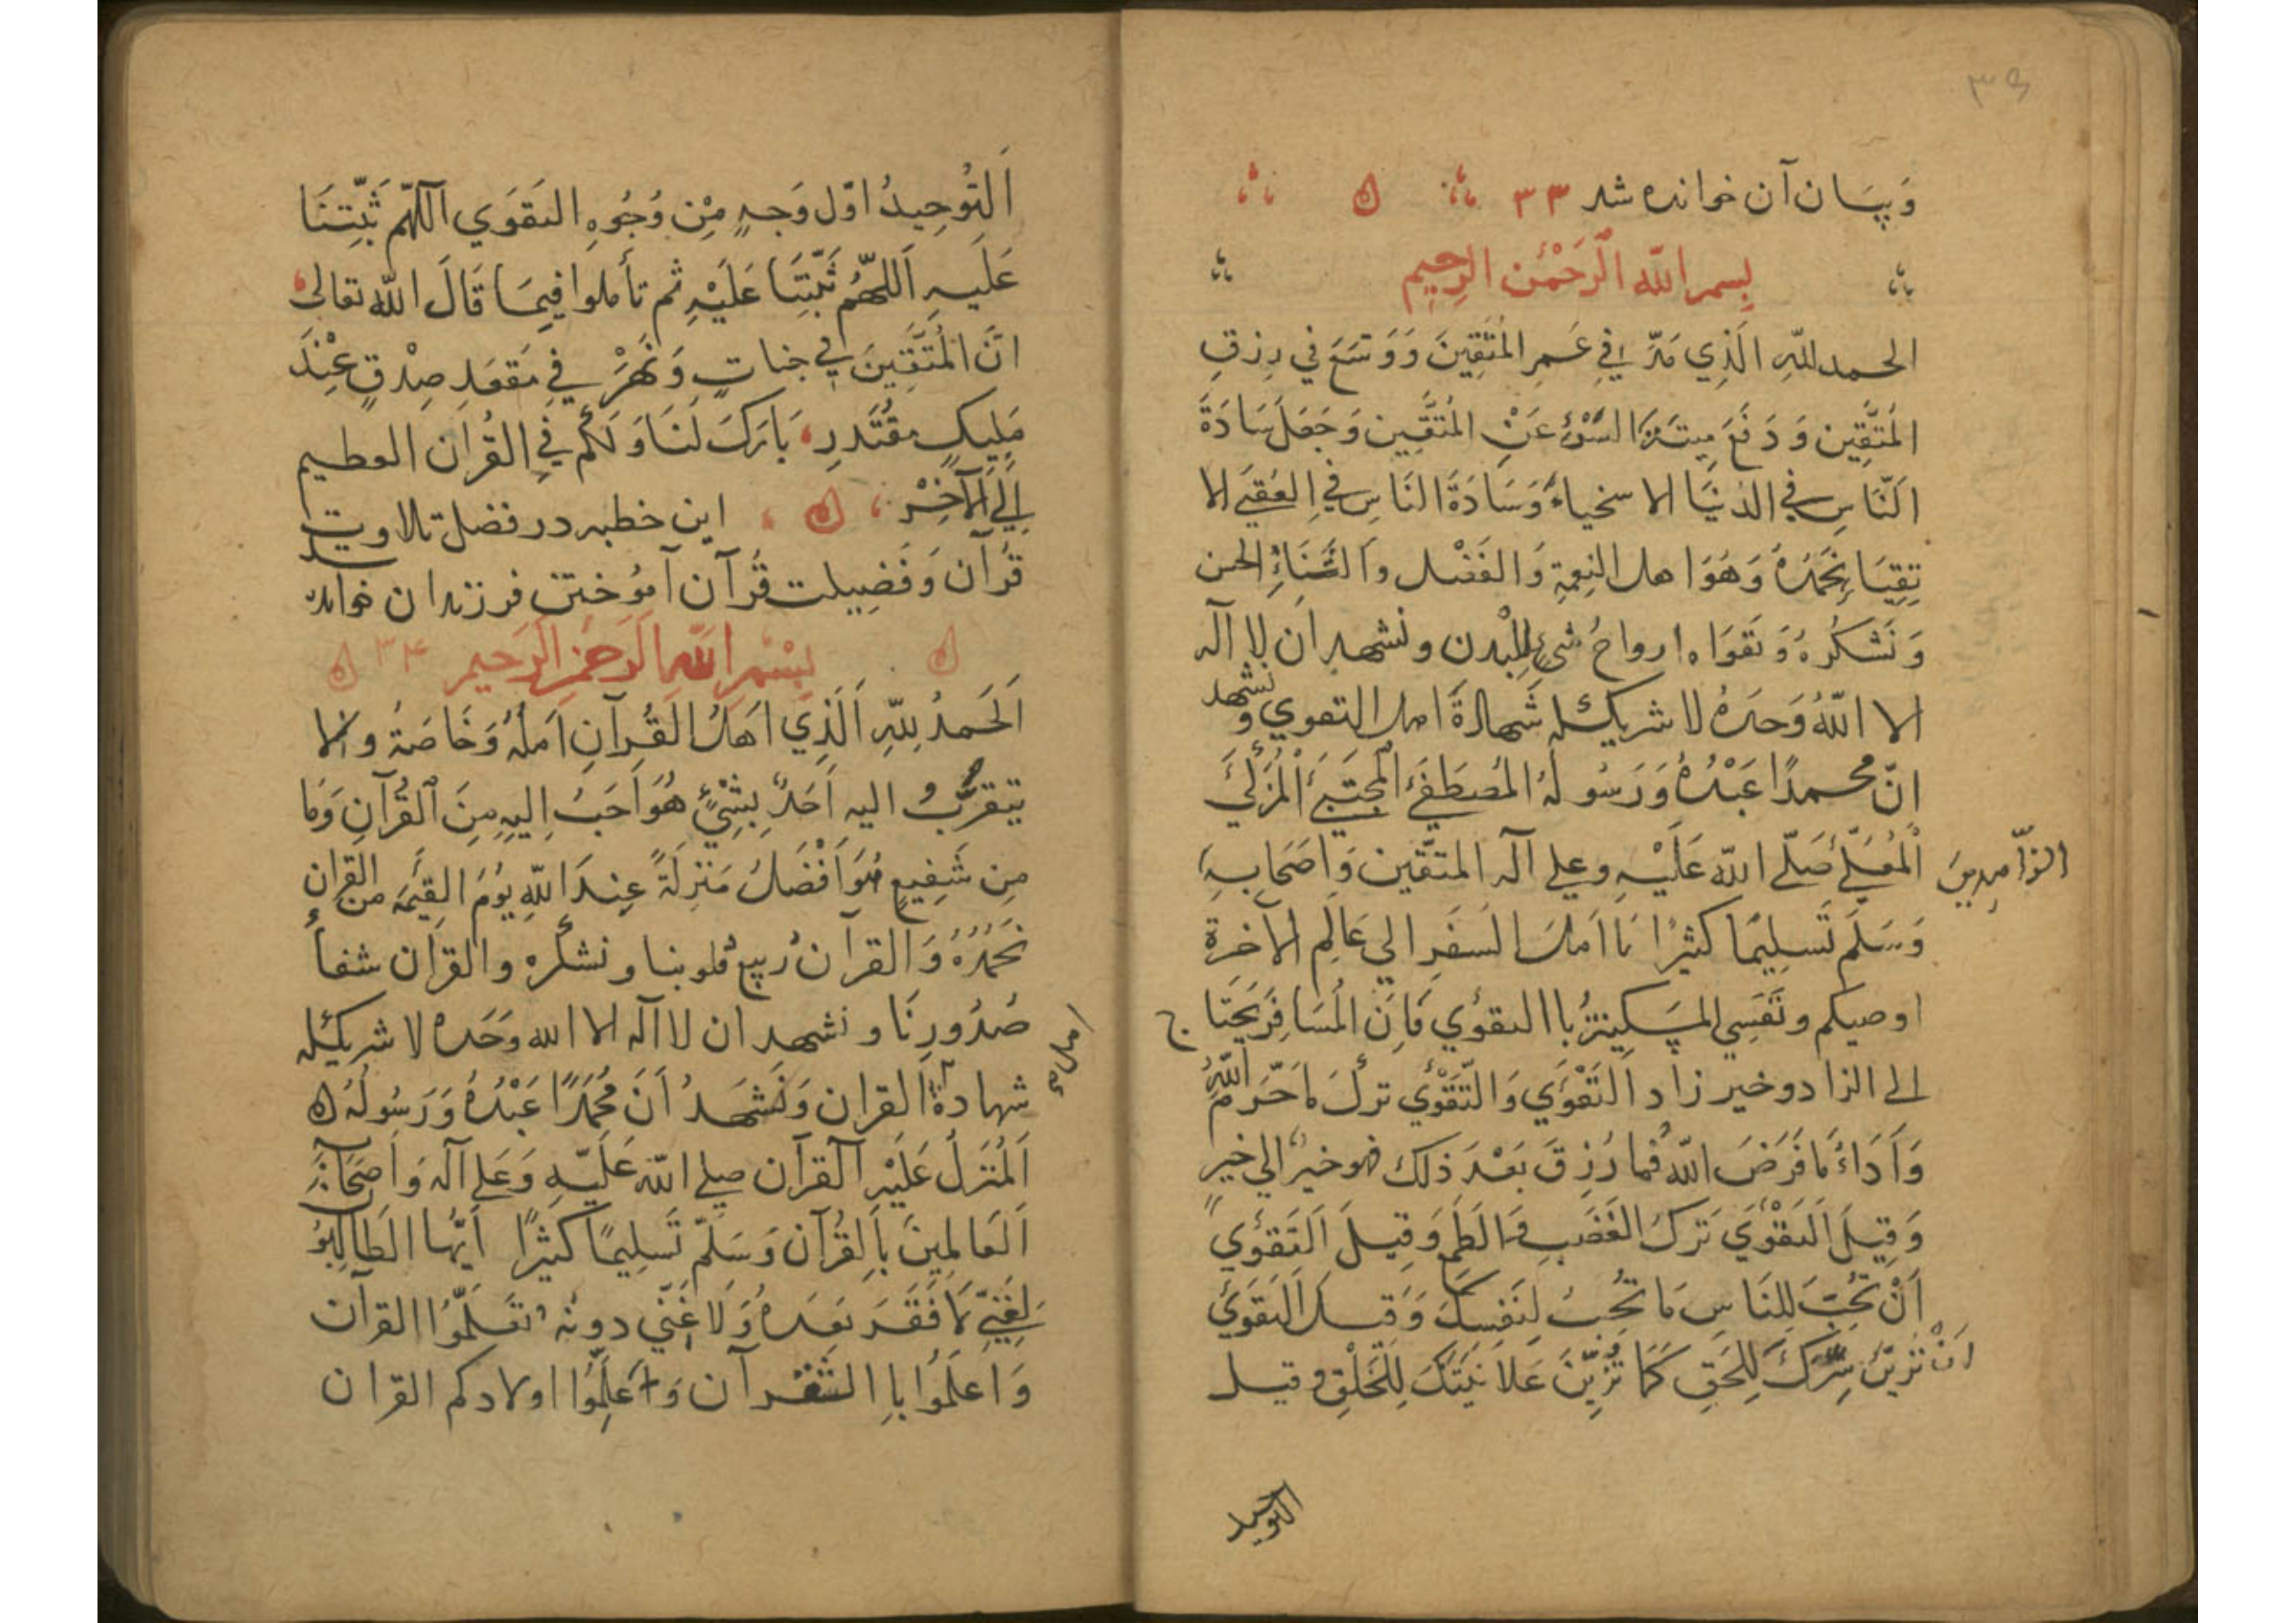 ۳۵
وَبِیَان آن خوانده شد ۳۳
بِسمِ اللّه الرَّحْمٰن الرَّحِیم
الحمد للّهِ الَّذِي مَدَّ فِي عُمرِ المُتَّقِينَ وَوَسَّعَ فِي رِزقِ
المُتَّقِين وَدَفَعَ مِيتَةَ السُّوْءِ عَنِ المُتَّقِين وَجَعَلَ سَادَةَ
النَّاسِ فِي الدُّنيَا الا سخياءُ وَسَادَةُ النَّاسِ فِي العُقبَي الا
تقِيَا نَحمَدُهُ وَهُوَ اهل النِعمةِ وَالفَضْل والثَّنَاءِ الحسن
وَنَشكُرهُ وَتَقوَاه ارواحُ شيءٍ لِلبُدن ونشهد ان لا اله
الا اللّهُ وَحدَهُ لا شريك له شَهادَةَ اهل التقوي و نشهد
انّ محمدًا عَبْدُهُ وَرَسُولُهُ المُصطَفَي المُجتَبَي المُزَكَّي
المُعَلَّي صَلَّي اللّه عَلَيْهِ وعلي آله المتقين وَاصحَابِهِ
الزّاهِدِينَ
وَسَلَّم تَسلِيمًا كثيرًا يَا اهلَ السَفَرِ الي عَالَمِ الآخرة
اوصيكم ونَفسِي المِسكِينَةُ باالتقوي فَاِنَ المُسَافِرَ يَحتَاج
الي الزاد وخير زاد التَقْوَي وَالتَّقوَي تركُ مَا حَرَّمَ اللّهُ
وَاَدَاءُ مَا فَرَضَ اللّهُ فما رُزِقَ بَعْدَ ذلك فهو خيرٌ الي خيرٍ
وَقِيلَ التَقْوَي تَركُ الغَضَبِ وَالطَمَع وَقِيلَ التَقوَي
اَنْ تُحِبَّ لِلنَاسِ مَا تُحِبُ لِنَفسِكَ وَقِيل التَقوَي
اَنْ تُزيِّنَ سِرَّكَ لِلحَقِ كَمَا تُزيِّنَ عَلاَنِيَتَكَ لِلخَلْقِ وقيل
التوحيد
اَلتَوحِيدُ اوّل وَجهٍ مِن وُجُوهِ التقوَي اللّهم ثَبِّتنَا
عَلَيهِ اَللّهُمَّ ثَبِّتنَا عَلَيْهِ ثم تأملوا فِيمَا قَالَ اللّه تعالى
انَّ المُتَّقِينَ فِي جناتٍ وَنَهَرْ فِي مَقعَدِ صِدْقٍ عِنْدَ
مَلِيكٍ مقتَدرِ بَارَكَ لَنَا وَلَكُم فِي القُرانِ العظيم
اِلَي الآخِرْ این خطبه در فضل تلاوت
قُرآن وَفَضِیلت قُرآن آموُختن فرزندان خوانده شد
بِسْمِ اللّهِ الرَّحمنِ الرَّحيم ۳۴
اَلحَمدُ لِلّهِ اَلَّذِي اَهلُ القُرآنِ اَهلُهُ وَخَاصَتهُ و لا
يتقرَّبُ اليه اَحَدٌ بِشَيْءٍ هُوَ اَحَبُ اِليهِ مِنَ القُرآنِ وَمَا
مِن شَفِيعٍ هُوَ اَفْضَلُ مَنزِلَةً عِندَ اللّهِ يَوْمَ القِيمَةِ من القران
نَحمَدُهُ وَالقرآن رَبيع قلوبنا ونشكره والقران شفاءُ
صُدُورِنَا ونشهد ان لا اله الا الله وَحدَه لا شريك له
شهادة القران وَنَشهَدُ اَنَ مُحَمَدًا عَبْدُهُ وَرَسُولُهُ
اهل
اَلمُنَزلُ عَلَيْهِ القرآن صلي اللّه عَلَيهِ وَعَلي آله وَاصحَابِهِ
اَلعَالِمِينَ بِاَلقُرآن وَسَلّم تَسلِيمًا كثيرًا اَيُّها الطَالِبُو
لِغَنِيٍّ لَا فَقَرَ بَعدَهُ وَلَا غِنَي دونَه تَعَلَّمُوا القرآن
وَاعلَمُوا باالقرآن وَعَلِّمُوا اولادكم القران